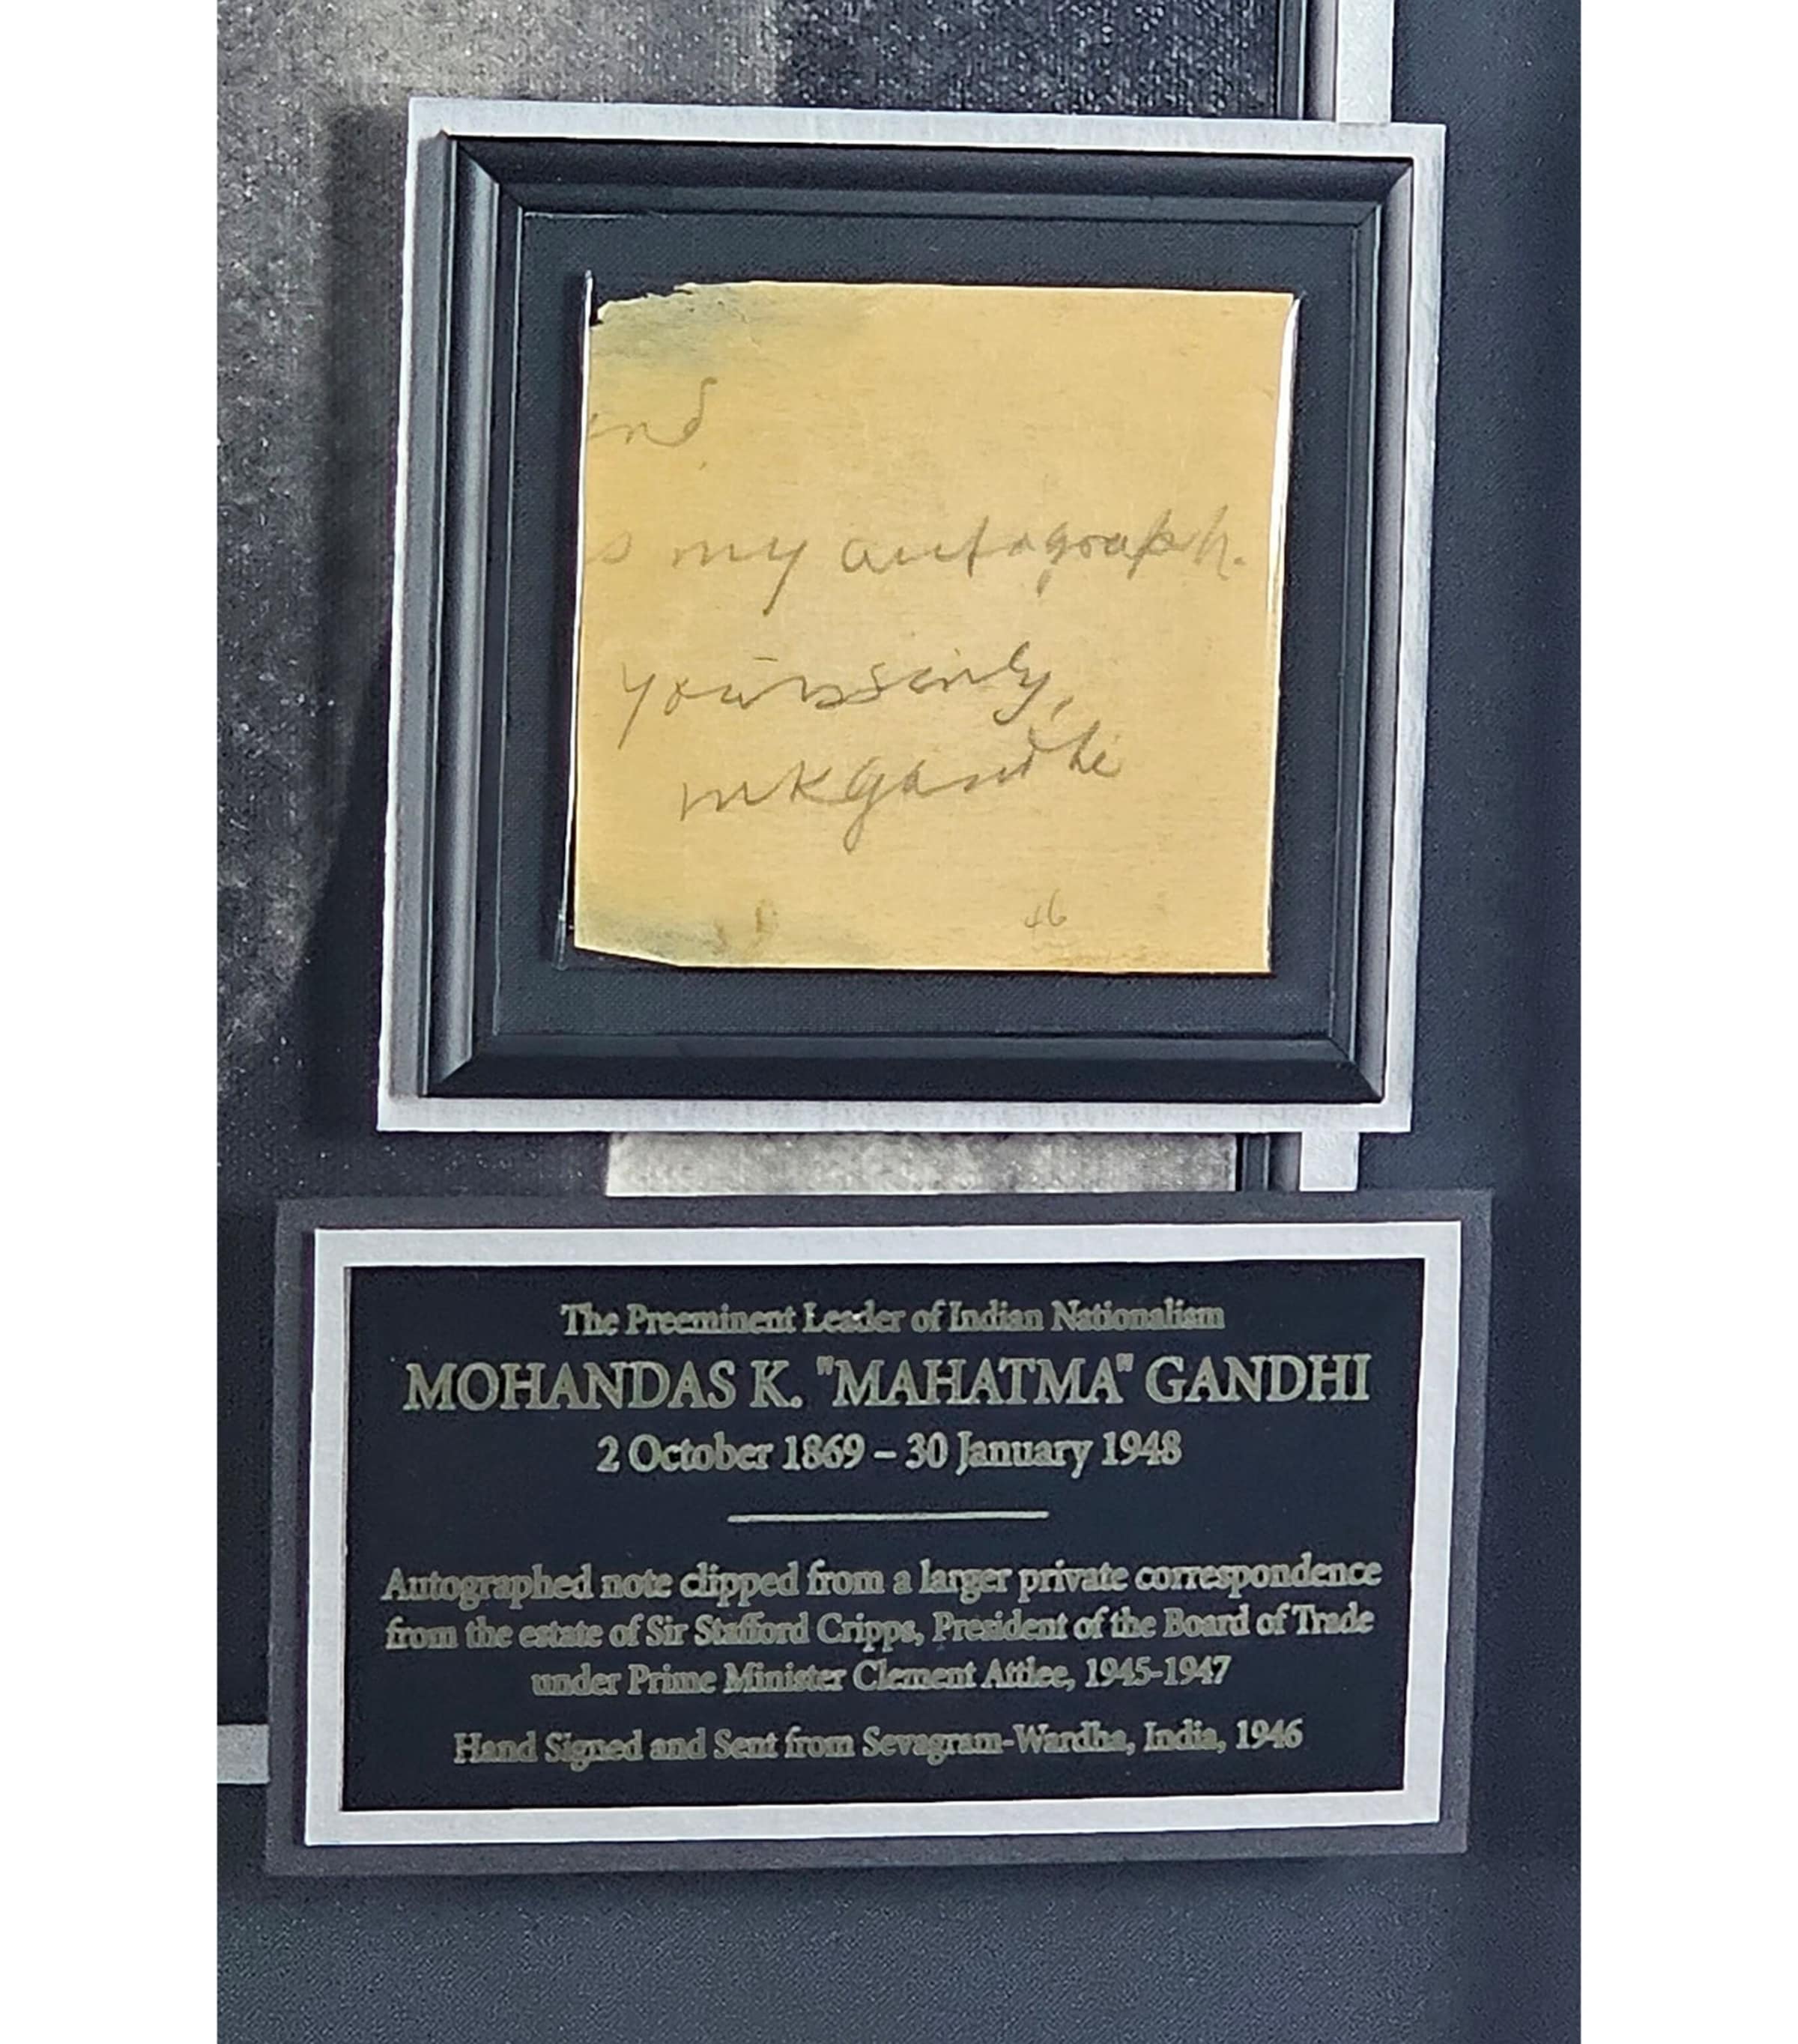 end
s my autograph.
yours sinly,
mkgandhi
46
The Preeminent Leader of Indian Nationalism
MOHANDAS K. "MAHATMA" GANDHI
2 October 1869 – 30 January 1948
Autographed note clipped from a larger private correspondence
from the estate of Sir Stafford Cripps, President of the Board of Trade
under Prime Minister Clement Attlee, 1945-1947
Hand Signed and Sent from Sevagram-Wardha, India, 1946